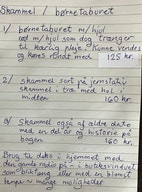 Skammel / børnetaburet
1/ børnetaburet m/hjul
ød m/hjul som dog trænger
til kærlig pleje - kunne vendes
og køres rundt med 125 kr.
2/ skammel sort på jernstativ
skammel i træ med hul i
midten 160 kr.
3/ skammel også af ældre dato
med en del år og historie på
bagen 160 kr.
Brug til deko i hjemmet med
den gamle radio på - i butiksvinduet
som blikfang eller med en blomst
tempe - mange muligheder